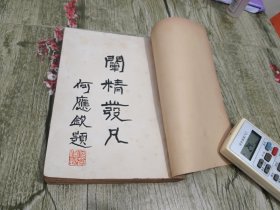 闡精發凡
何應欽題